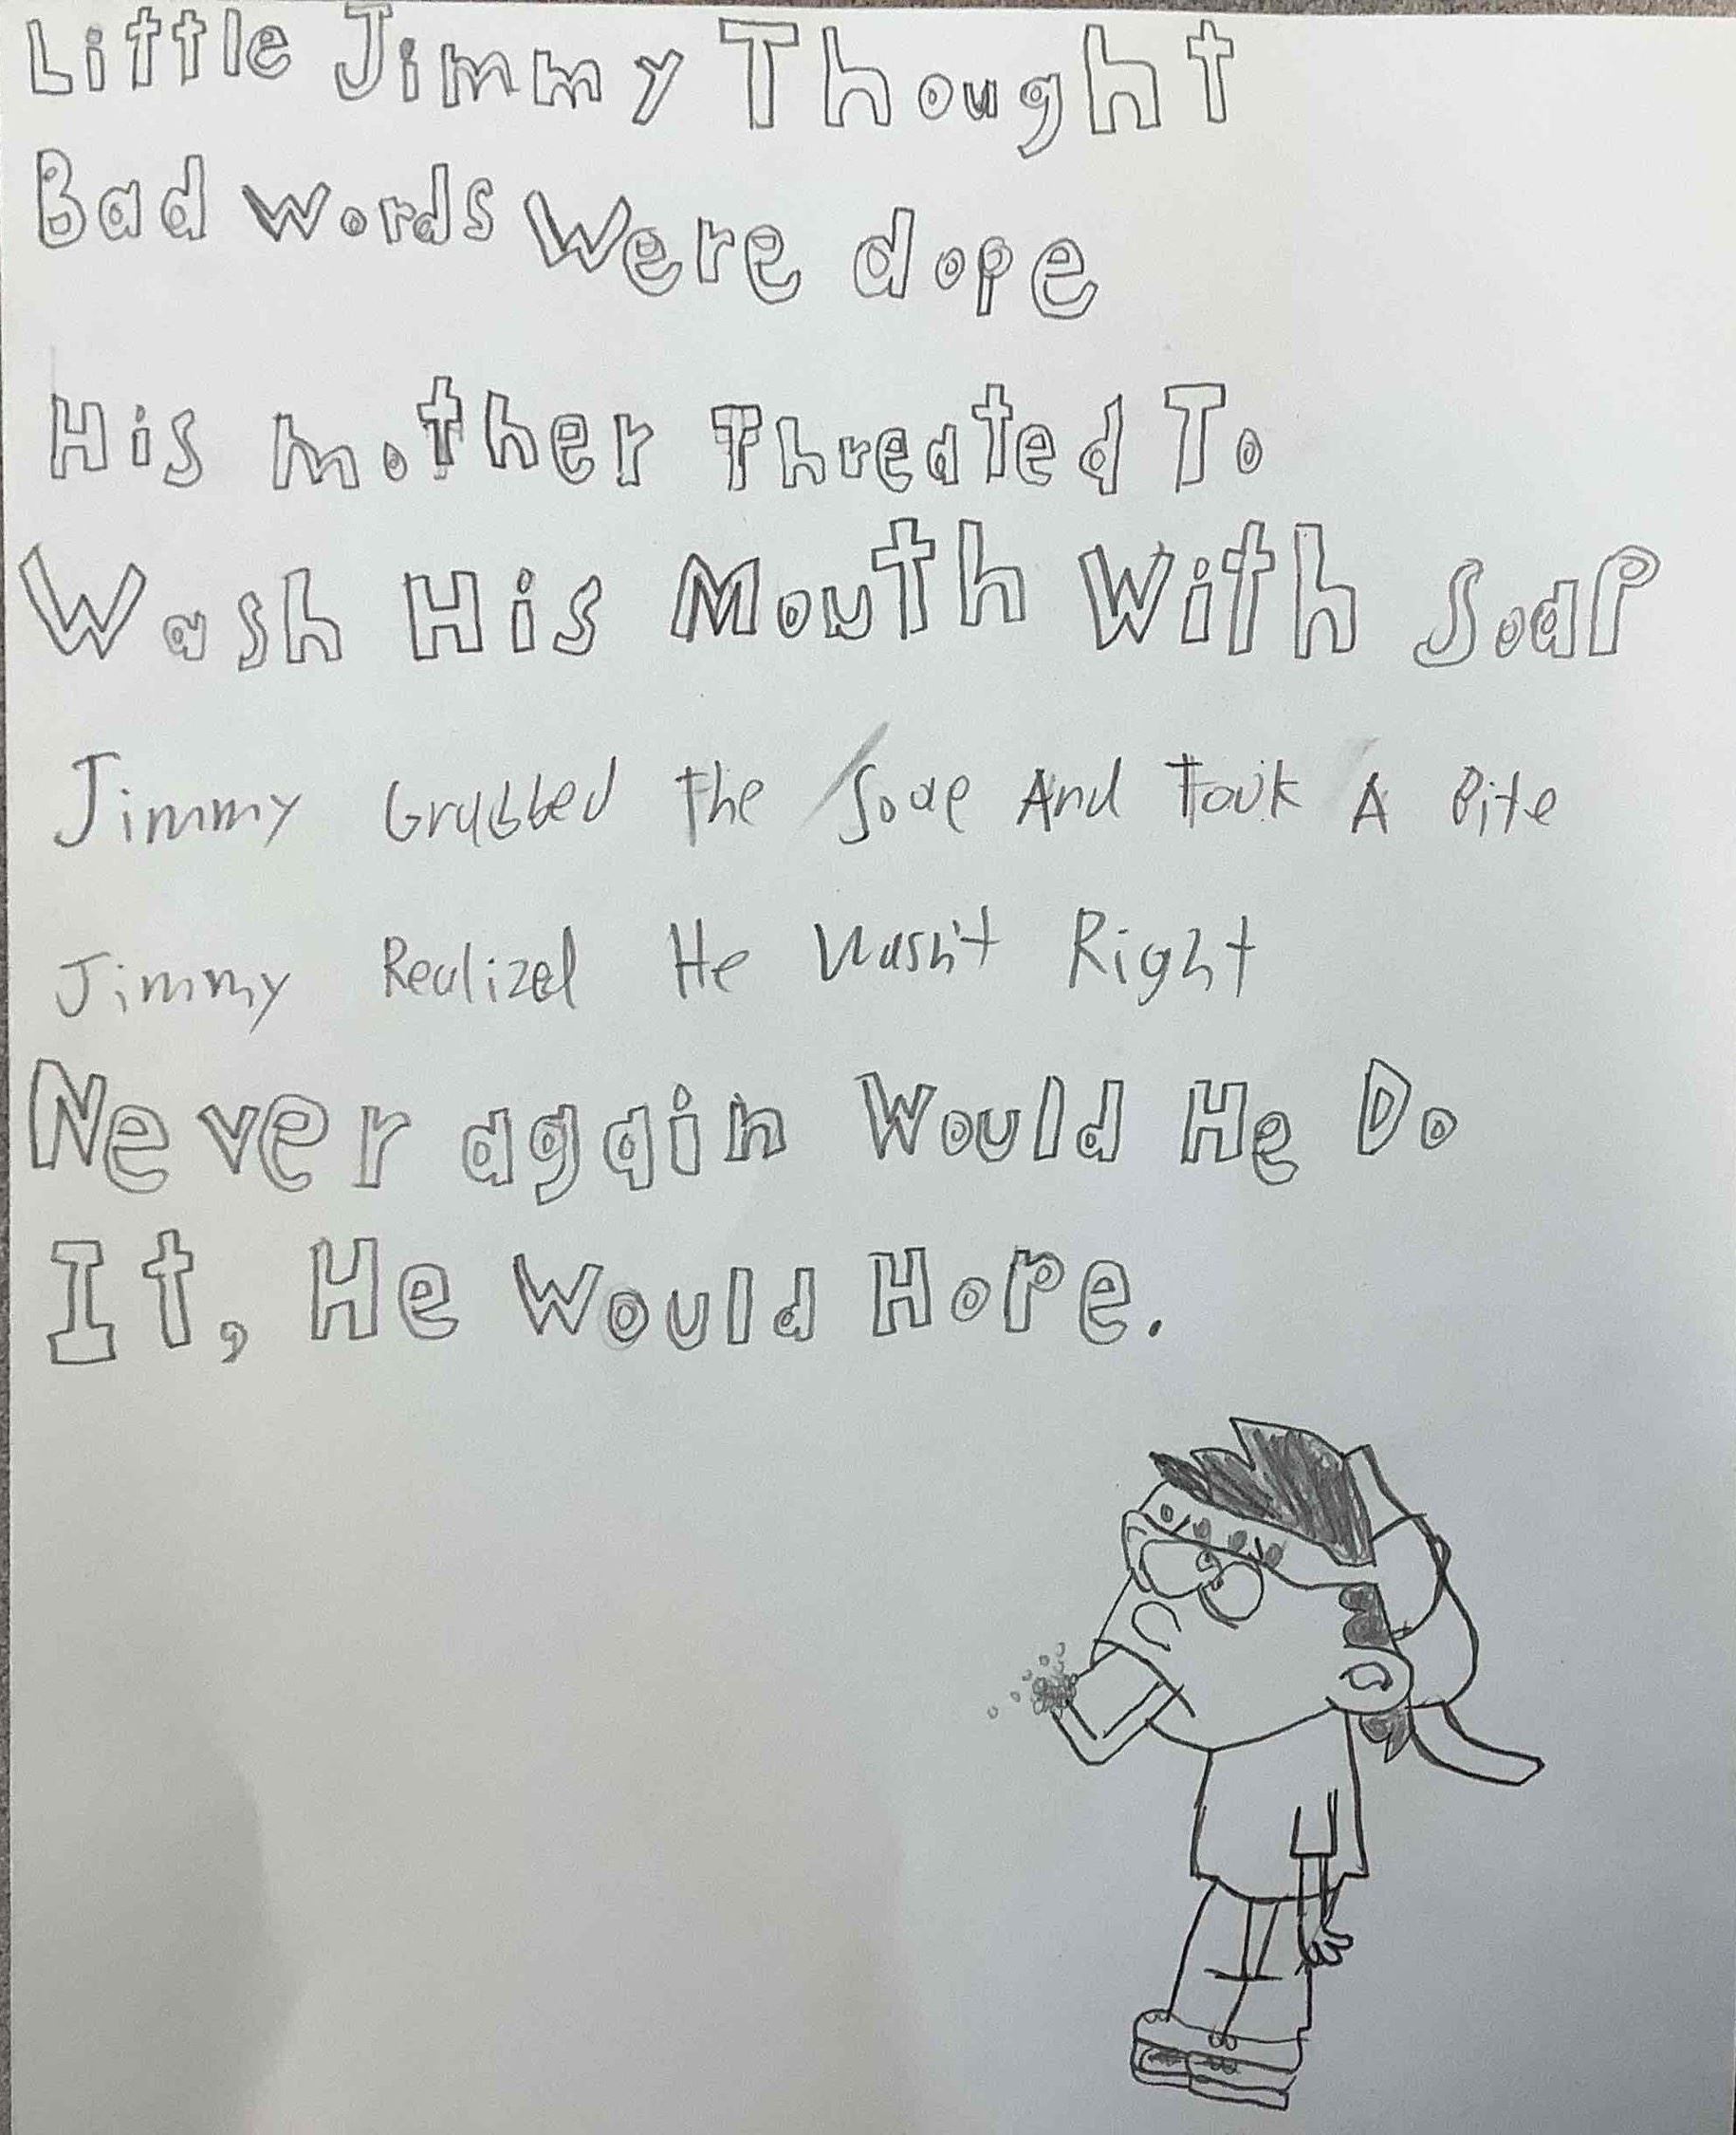 Little Jimmy Thought
Bad words were dope
His mother Threated To
Wash His Mouth With Soap
Jimmy Grabbed the Soap And Took A Bite
Jimmy Realized He Wasn't Right
Never again Would He Do
It, He Would Hope.